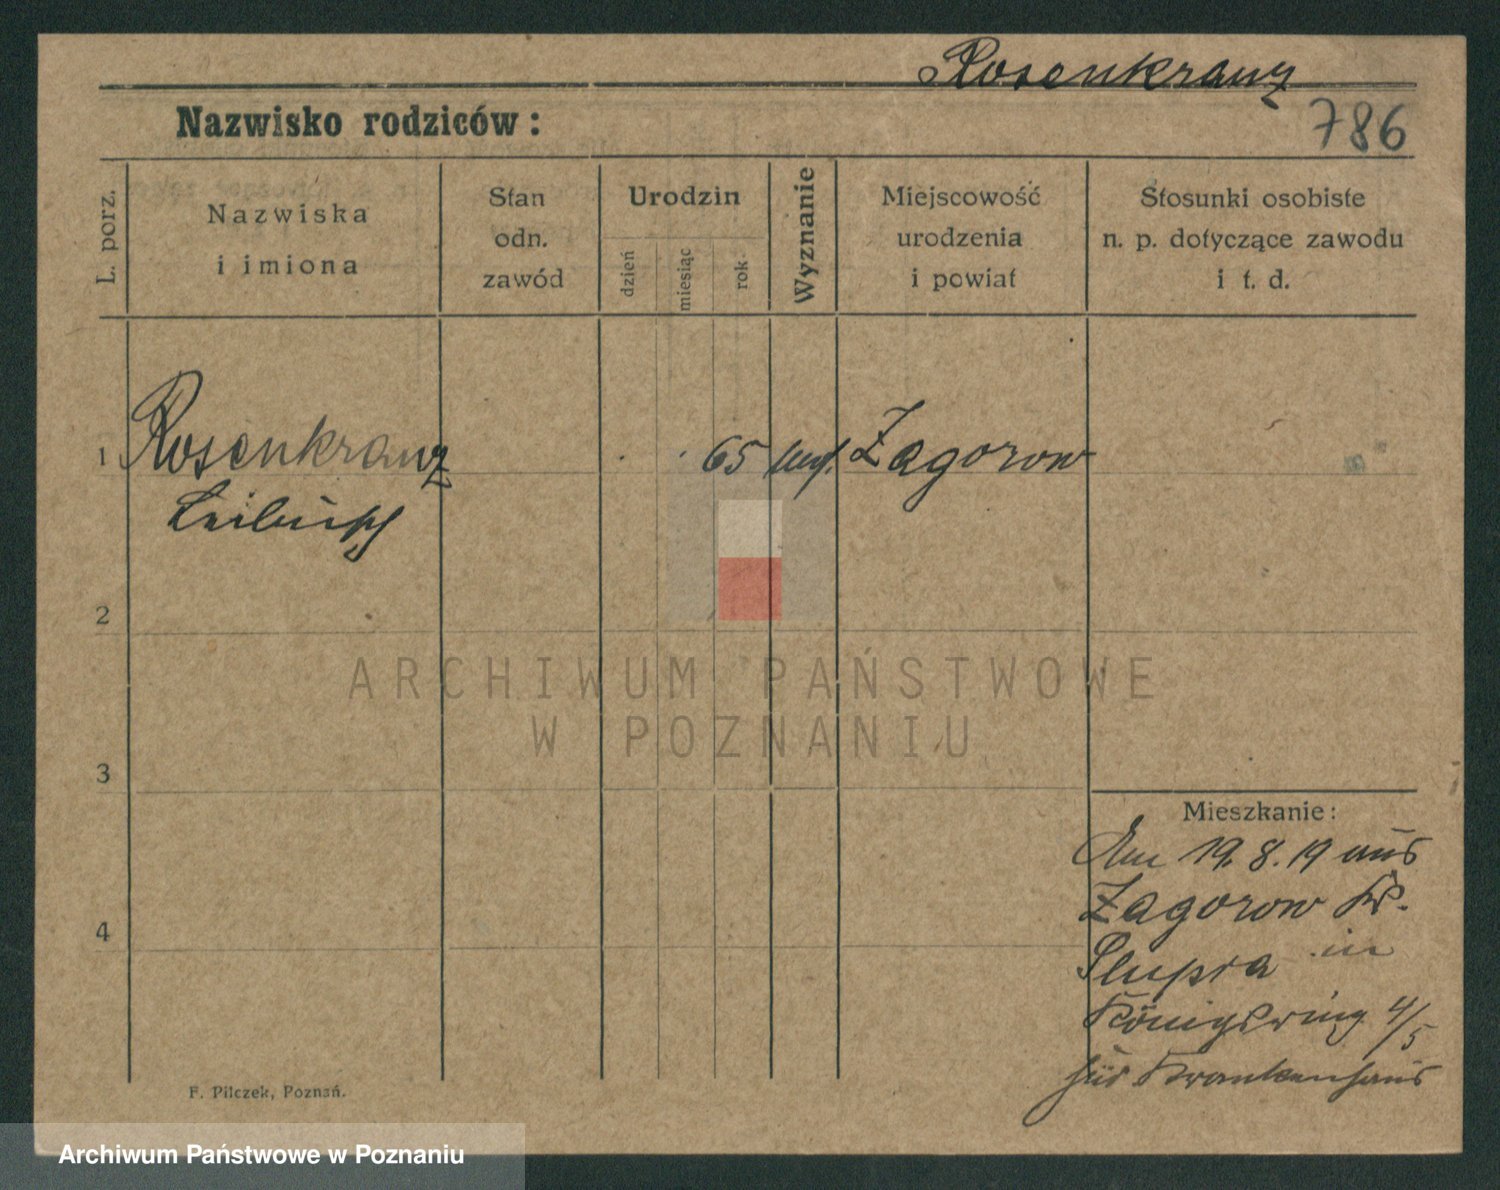 Rosenkranz
Nazwisko rodziców:
786
L. porz.
Nazwiska
i imiona
Stan
odn.
zawód
Urodzin
dzień
miesiąc
rok
Wyznanie
Miejscowość
urodzenia
i powiat
Stosunki osobiste
n. p. dotyczące zawodu
i t. d.
1
Rosenkranz
Leibusch
65
Zagorow
2
3
4
ARCHIWUM PAŃSTWOWE
W POZNANIU
Mieszkanie:
Am 19.8.19 aus
Zagorow Kr.
Slupia in
Königsring 4/5
für Krankenhaus
F. Pilczek, Poznań.
Archiwum Państwowe w Poznaniu